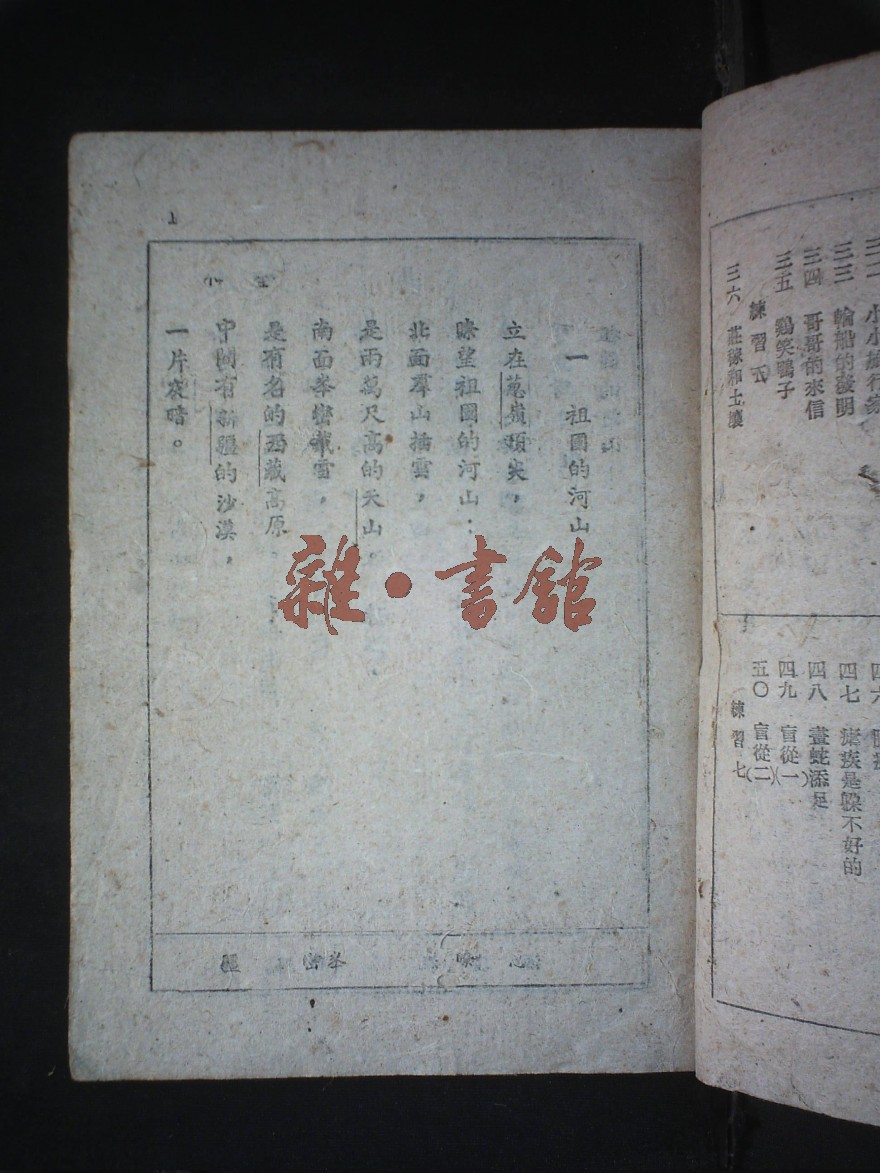 三三 輪船的發明
三四 哥哥的來信
三五 鷄笑鴨子
練習五
三六 莊稼和土壤
四七 瘧疾是躲不好的
四八 畫蛇添足
四九 盲從(一)
五〇 盲從(二)
練習七
一 祖國的河山
立在葱嶺頂尖，
瞭望祖國的河山：
北面羣山插雲，
是兩萬尺高的天山。
南面峯巒戴雪，
是有名的西藏高原。
中間有新疆的沙漠，
一片灰暗。
瞭 峯巒 疆
雜·書館